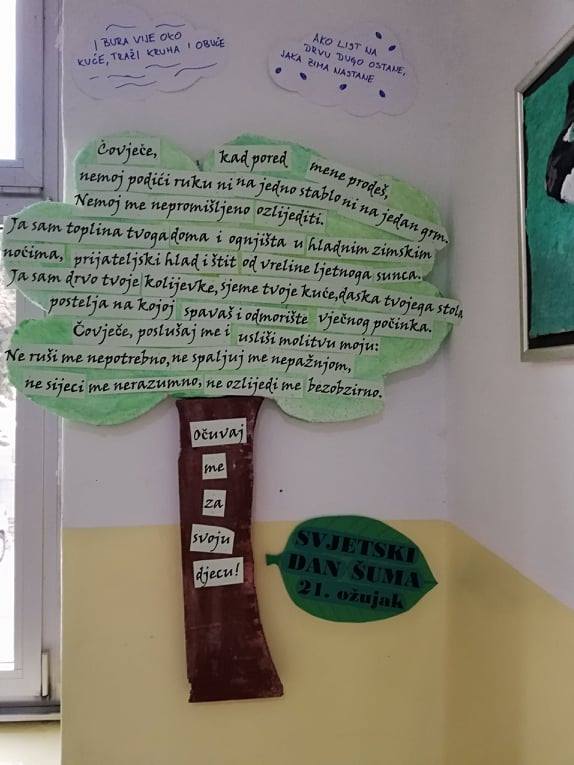 I BURA VIJE OKO
KUĆE, TRAŽI KRUHA I OBUĆE
AKO LIST NA
DRVU DUGO OSTANE,
JAKA ZIMA NASTANE
Čovječe, kad pored mene prođeš,
nemoj podići ruku ni na jedno stablo ni na jedan grm.
Nemoj me nepromišljeno ozlijediti.
Ja sam toplina tvoga doma i ognjišta u hladnim zimskim
noćima, prijateljski hlad i štit od vreline ljetnoga sunca.
Ja sam drvo tvoje kolijevke, sjeme tvoje kuće, daska tvojega stola
postelja na kojoj spavaš i odmorište vječnog počinka.
Čovječe, poslušaj me i usliši molitvu moju:
Ne ruši me nepotrebno, ne spaljuj me nepažnjom,
ne sijeci me nerazumno, ne ozlijedi me bezobzirno.
Očuvaj
me
za
svoju
djecu!
SVJETSKI
DAN ŠUMA
21. ožujak